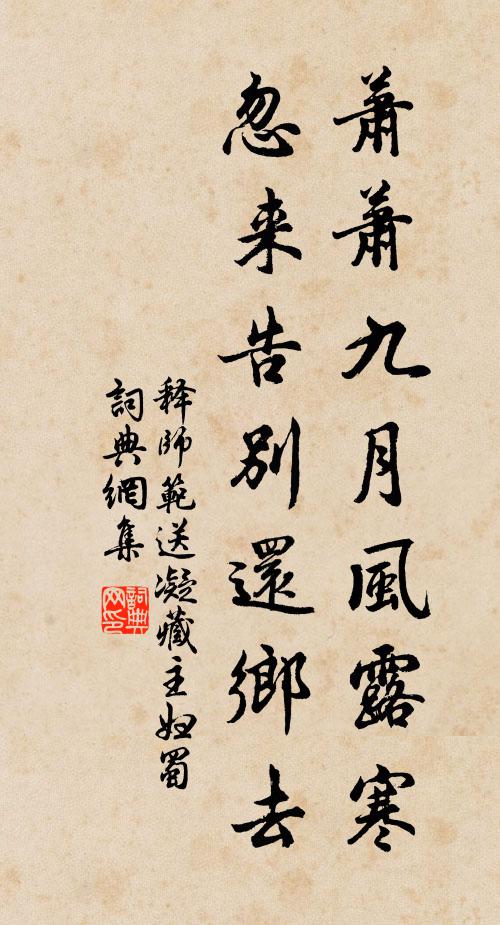 蕭蕭九月風露寒
忽来告別還鄉去
释師範送凝藏主歸蜀
詞典網集
詞典网印